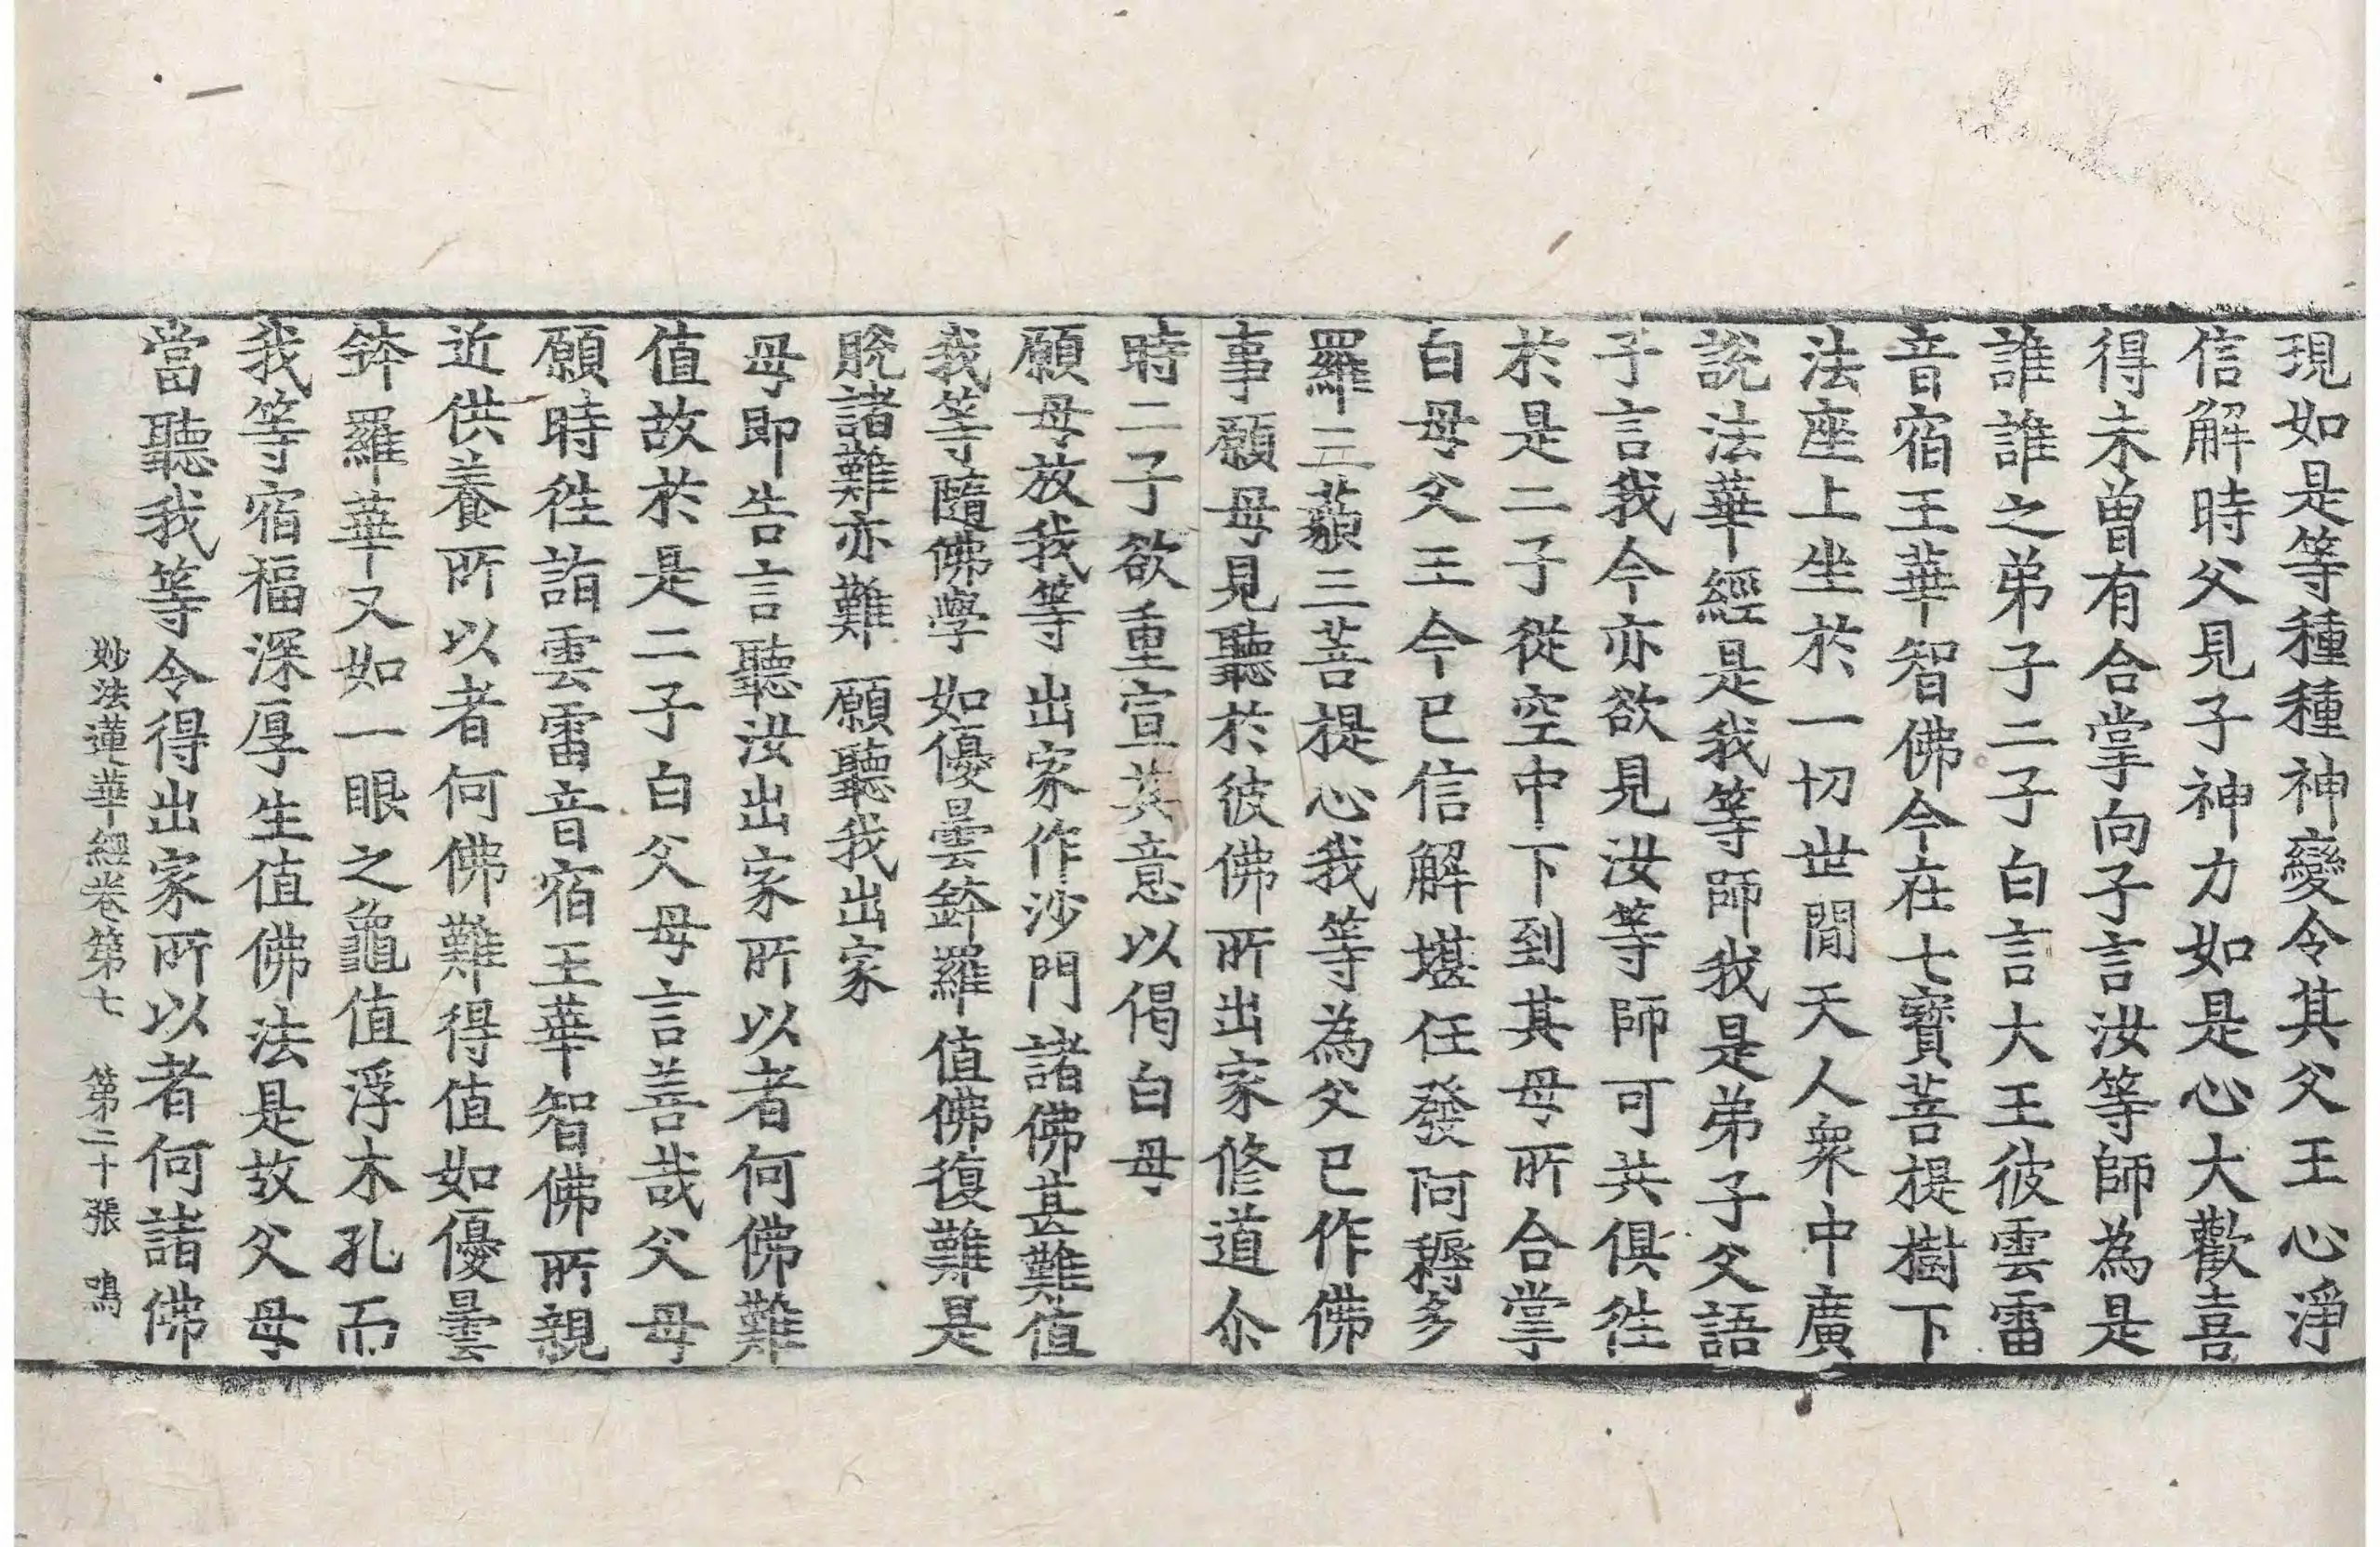 現如是等種種神變令其父王心淨
信解時父見子神力如是心大歡喜
得未曾有合掌向子言汝等師為是
誰誰之弟子二子白言大王彼雲雷
音宿王華智佛今在七寶菩提樹下
法座上坐於一切世間天人衆中廣
說法華經是我等師我是弟子父語
子言我今亦欲見汝等師可共俱徃
於是二子從空中下到其母所合掌
白母父王今已信解堪任發阿耨多
羅三藐三菩提心我等為父已作佛
事願母見聽於彼佛所出家修道尒
時二子欲重宣其意以偈白母
願母放我等 出家作沙門 諸佛甚難值
我等隨佛學 如優曇鉢羅 值佛復難是
脫諸難亦難 願聽我出家
母即告言聽汝出家所以者何佛難
值故於是二子白父母言善哉父母
願時徃詣雲雷音宿王華智佛所親
近供養所以者何佛難得值如優曇
鉢羅華又如一眼之龜值浮木孔而
我等宿福深厚生值佛法是故父母
當聽我等令得出家所以者何諸佛
妙法蓮華經卷第七 第二十張 鳴